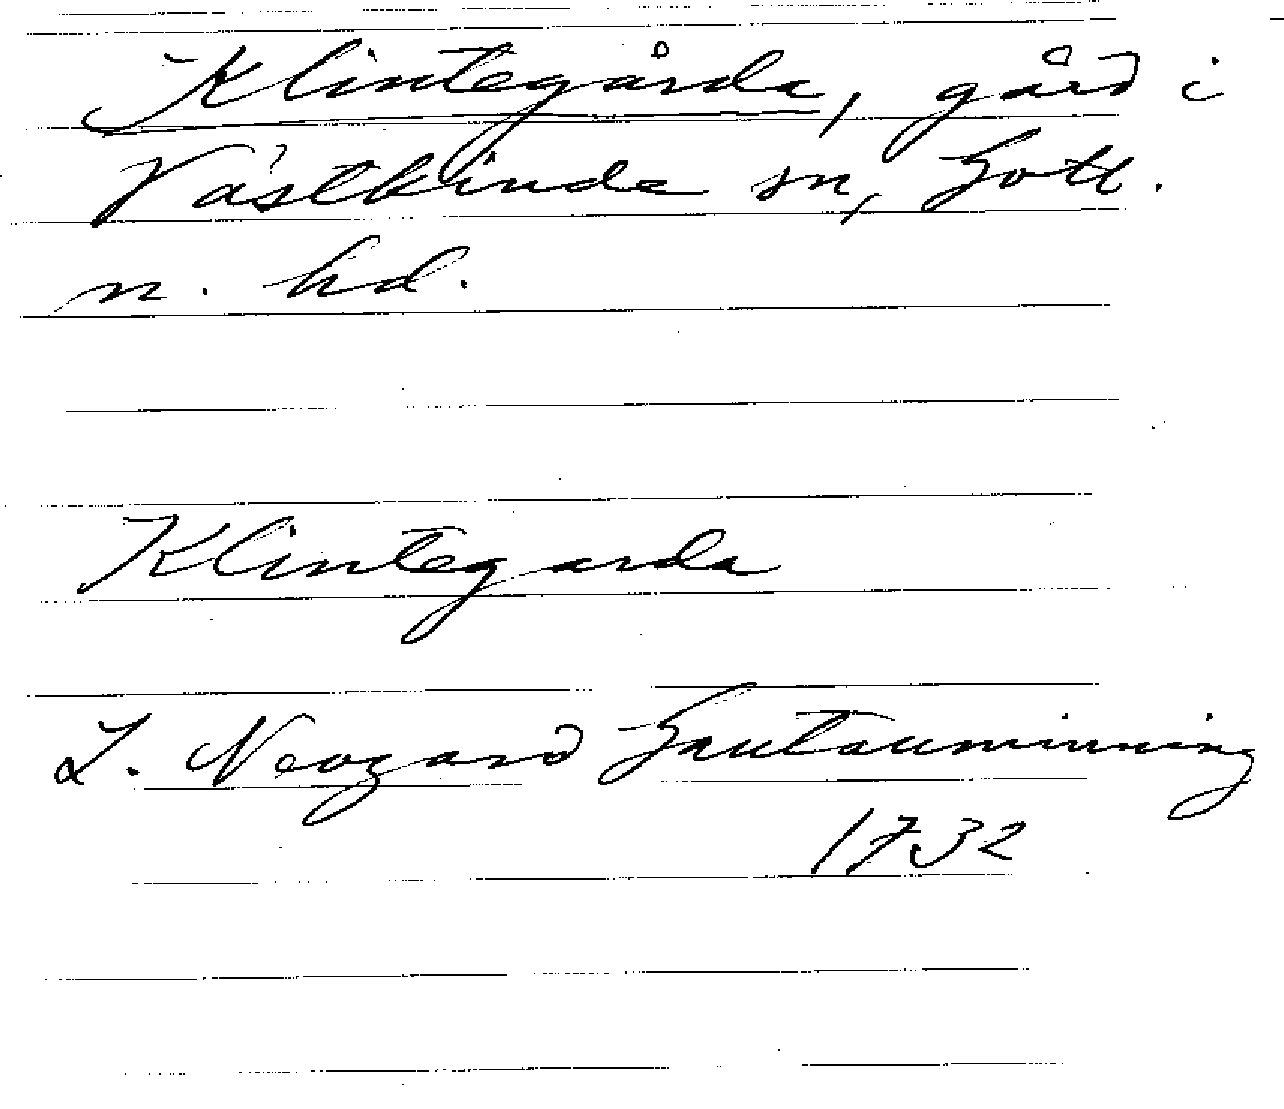 Klintegårda, gård i
Västkinde sn, Gotl.
n. hd.
Klintegarda
L. Neogard Gautauminning
1732